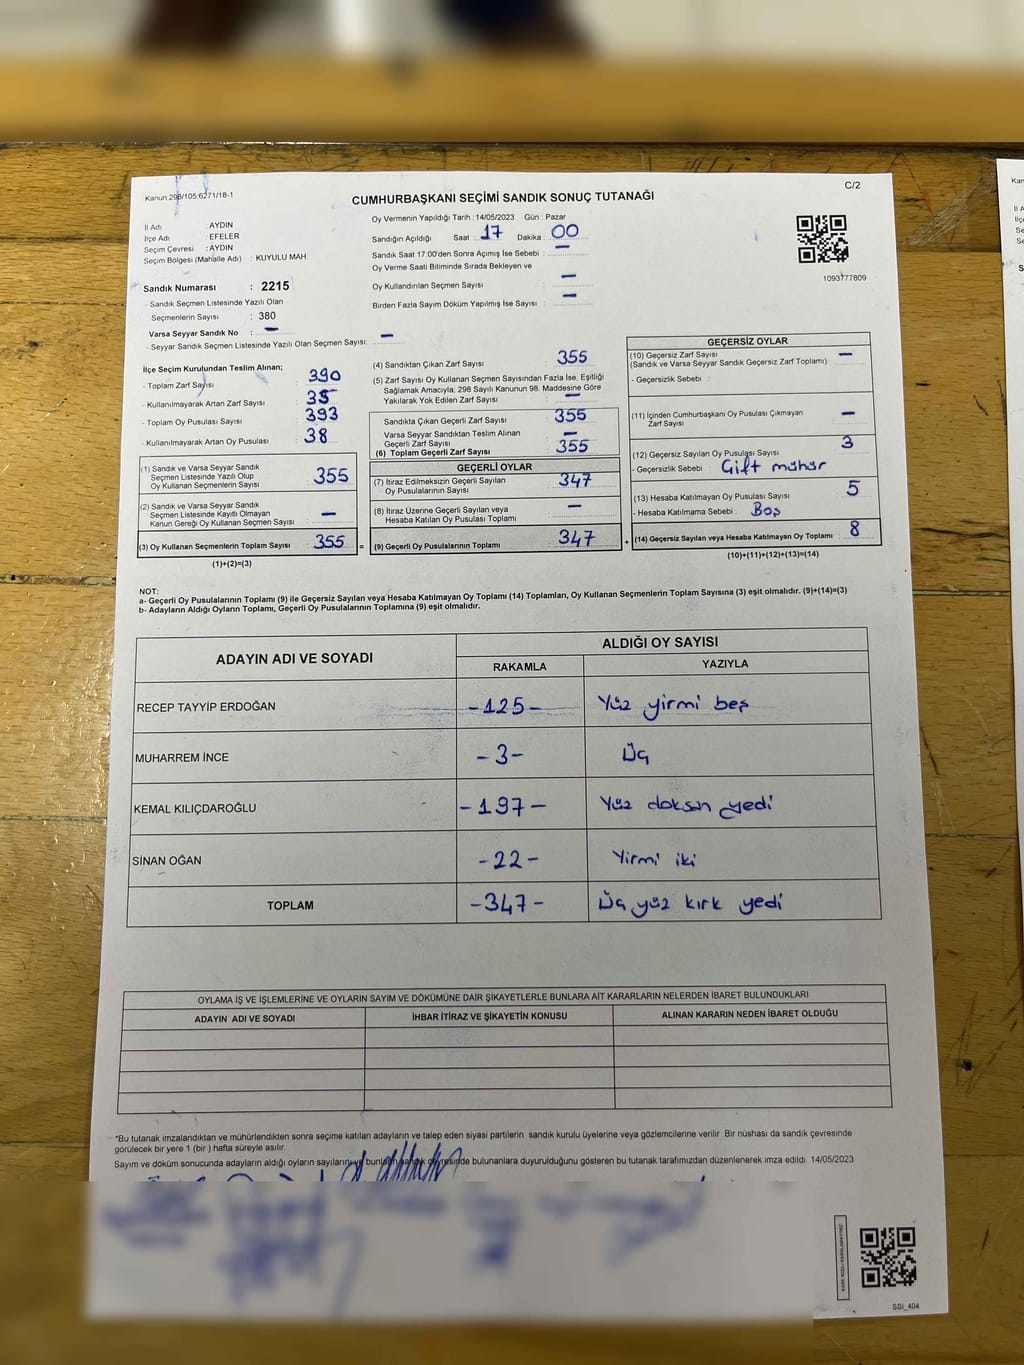 Kanun:298/105;6271/18-1
C/2
CUMHURBAŞKANI SEÇİMİ SANDIK SONUÇ TUTANAĞI
İl Adı AYDIN
İlçe Adı EFELER
Seçim Çevresi : AYDIN
Seçim Bölgesi (Mahalle Adı) : KUYULU MAH.
Sandık Numarası : 2215
- Sandık Seçmen Listesinde Yazılı Olan
Seçmenlerin Sayısı : 380
Varsa Seyyar Sandık No : –
- Seyyar Sandık Seçmen Listesinde Yazılı Olan Seçmen Sayısı: –
Oy Vermenin Yapıldığı Tarih : 14/05/2023 Gün : Pazar
Sandığın Açıldığı Saat : 17 Dakika : 00
Sandık Saat 17:00'den Sonra Açımış İse Sebebi : –
Oy Verme Saati Bitiminde Sırada Bekleyen ve
Oy Kullandırılan Seçmen Sayısı : –
Birden Fazla Sayım Döküm Yapılmış İse Sayısı : –
1093777809
İlçe Seçim Kurulundan Teslim Alınan;
- Toplam Zarf Sayısı 390
- Kullanılmayarak Artan Zarf Sayısı 35
- Toplam Oy Pusulası Sayısı 393
- Kullanılmayarak Artan Oy Pusulası 38
(1) Sandık ve Varsa Seyyar Sandık
Seçmen Listesinde Yazılı Olup
Oy Kullanan Seçmenlerin Sayısı 355
(2) Sandık ve Varsa Seyyar Sandık
Seçmen Listesinde Kayıtlı Olmayan
Kanun Gereği Oy Kullanan Seçmen Sayısı –
(3) Oy Kullanan Seçmenlerin Toplam Sayısı 355 =
(1)+(2)=(3)
(4) Sandıktan Çıkan Zarf Sayısı 355
(5) Zarf Sayısı Oy Kullanan Seçmen Sayısından Fazla İse, Eşitliği
Sağlamak Amacıyla; 298 Sayılı Kanunun 98. Maddesine Göre
Yakılarak Yok Edilen Zarf Sayısı –
Sandıkta Çıkan Geçerli Zarf Sayısı 355
Varsa Seyyar Sandıktan Teslim Alınan
Geçerli Zarf Sayısı –
(6) Toplam Geçerli Zarf Sayısı 355
GEÇERLİ OYLAR
(7) İtiraz Edilmeksizin Geçerli Sayılan
Oy Pusulalarının Sayısı 347
(8) İtiraz Üzerine Geçerli Sayılan veya
Hesaba Katılan Oy Pusulası Toplamı –
(9) Geçerli Oy Pusulalarının Toplamı 347 +
GEÇERSİZ OYLAR
(10) Geçersiz Zarf Sayısı –
(Sandık ve Varsa Seyyar Sandık Geçersiz Zarf Toplamı)
- Geçersizlik Sebebi :
(11) İçinden Cumhurbaşkanı Oy Pusulası Çıkmayan
Zarf Sayısı –
(12) Geçersiz Sayılan Oy Pusulası Sayısı 3
- Geçersizlik Sebebi : Çift mühür
(13) Hesaba Katılmayan Oy Pusulası Sayısı 5
- Hesaba Katılmama Sebebi : Boş
(14) Geçersiz Sayılan veya Hesaba Katılmayan Oy Toplamı 8
(10)+(11)+(12)+(13)=(14)
NOT:
a- Geçerli Oy Pusulalarının Toplamı (9) ile Geçersiz Sayılan veya Hesaba Katılmayan Oy Toplamı (14) Toplamları, Oy Kullanan Seçmenlerin Toplam Sayısına (3) eşit olmalıdır. (9)+(14)=(3)
b- Adayların Aldığı Oyların Toplamı, Geçerli Oy Pusulalarının Toplamına (9) eşit olmalıdır.
ADAYIN ADI VE SOYADI
ALDIĞI OY SAYISI
RAKAMLA YAZIYLA
RECEP TAYYİP ERDOĞAN -125- Yüz yirmi beş
MUHARREM İNCE -3- Üç
KEMAL KILIÇDAROĞLU -197- Yüz doksan yedi
SİNAN OĞAN -22- Yirmi iki
TOPLAM -347- Üç yüz kırk yedi
OYLAMA İŞ VE İŞLEMLERİNE VE OYLARIN SAYIM VE DÖKÜMÜNE DAİR ŞİKAYETLERLE BUNLARA AİT KARARLARIN NELERDEN İBARET BULUNDUKLARI
ADAYIN ADI VE SOYADI İHBAR İTİRAZ VE ŞİKAYETİN KONUSU ALINAN KARARIN NEDEN İBARET OLDUĞU
*Bu tutanak imzalandıktan ve mühürlendikten sonra seçime katılan adayların ve talep eden siyasi partilerin sandık kurulu üyelerine veya gözlemcilerine verilir. Bir nüshası da sandık çevresinde
görülecek bir yere 1 (bir) hafta süreyle asılır.
Sayım ve döküm sonucunda adayların aldığı oyların sayılarının bulunanlara duyurulduğunu gösteren bu tutanak tarafımızdan düzenlenerek imza edildi. 14/05/2023
SSI_404